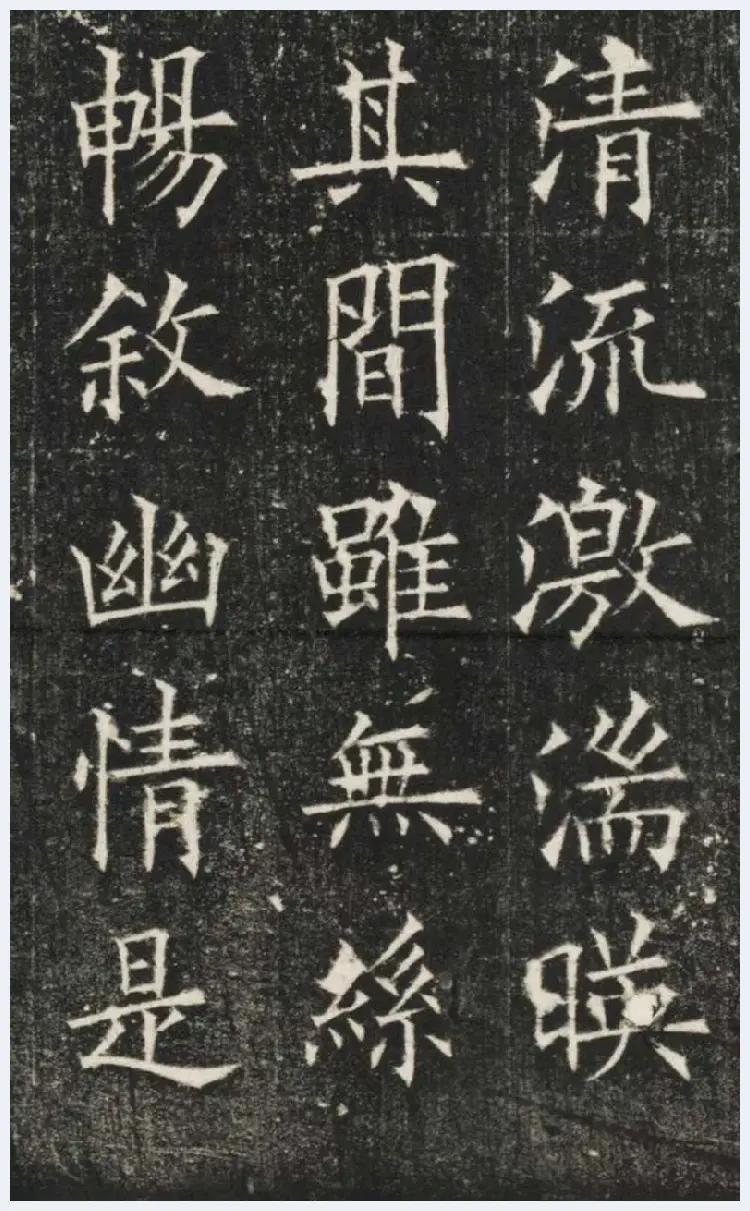 清流激湍暎
其間雖無絲
暢敘幽情是